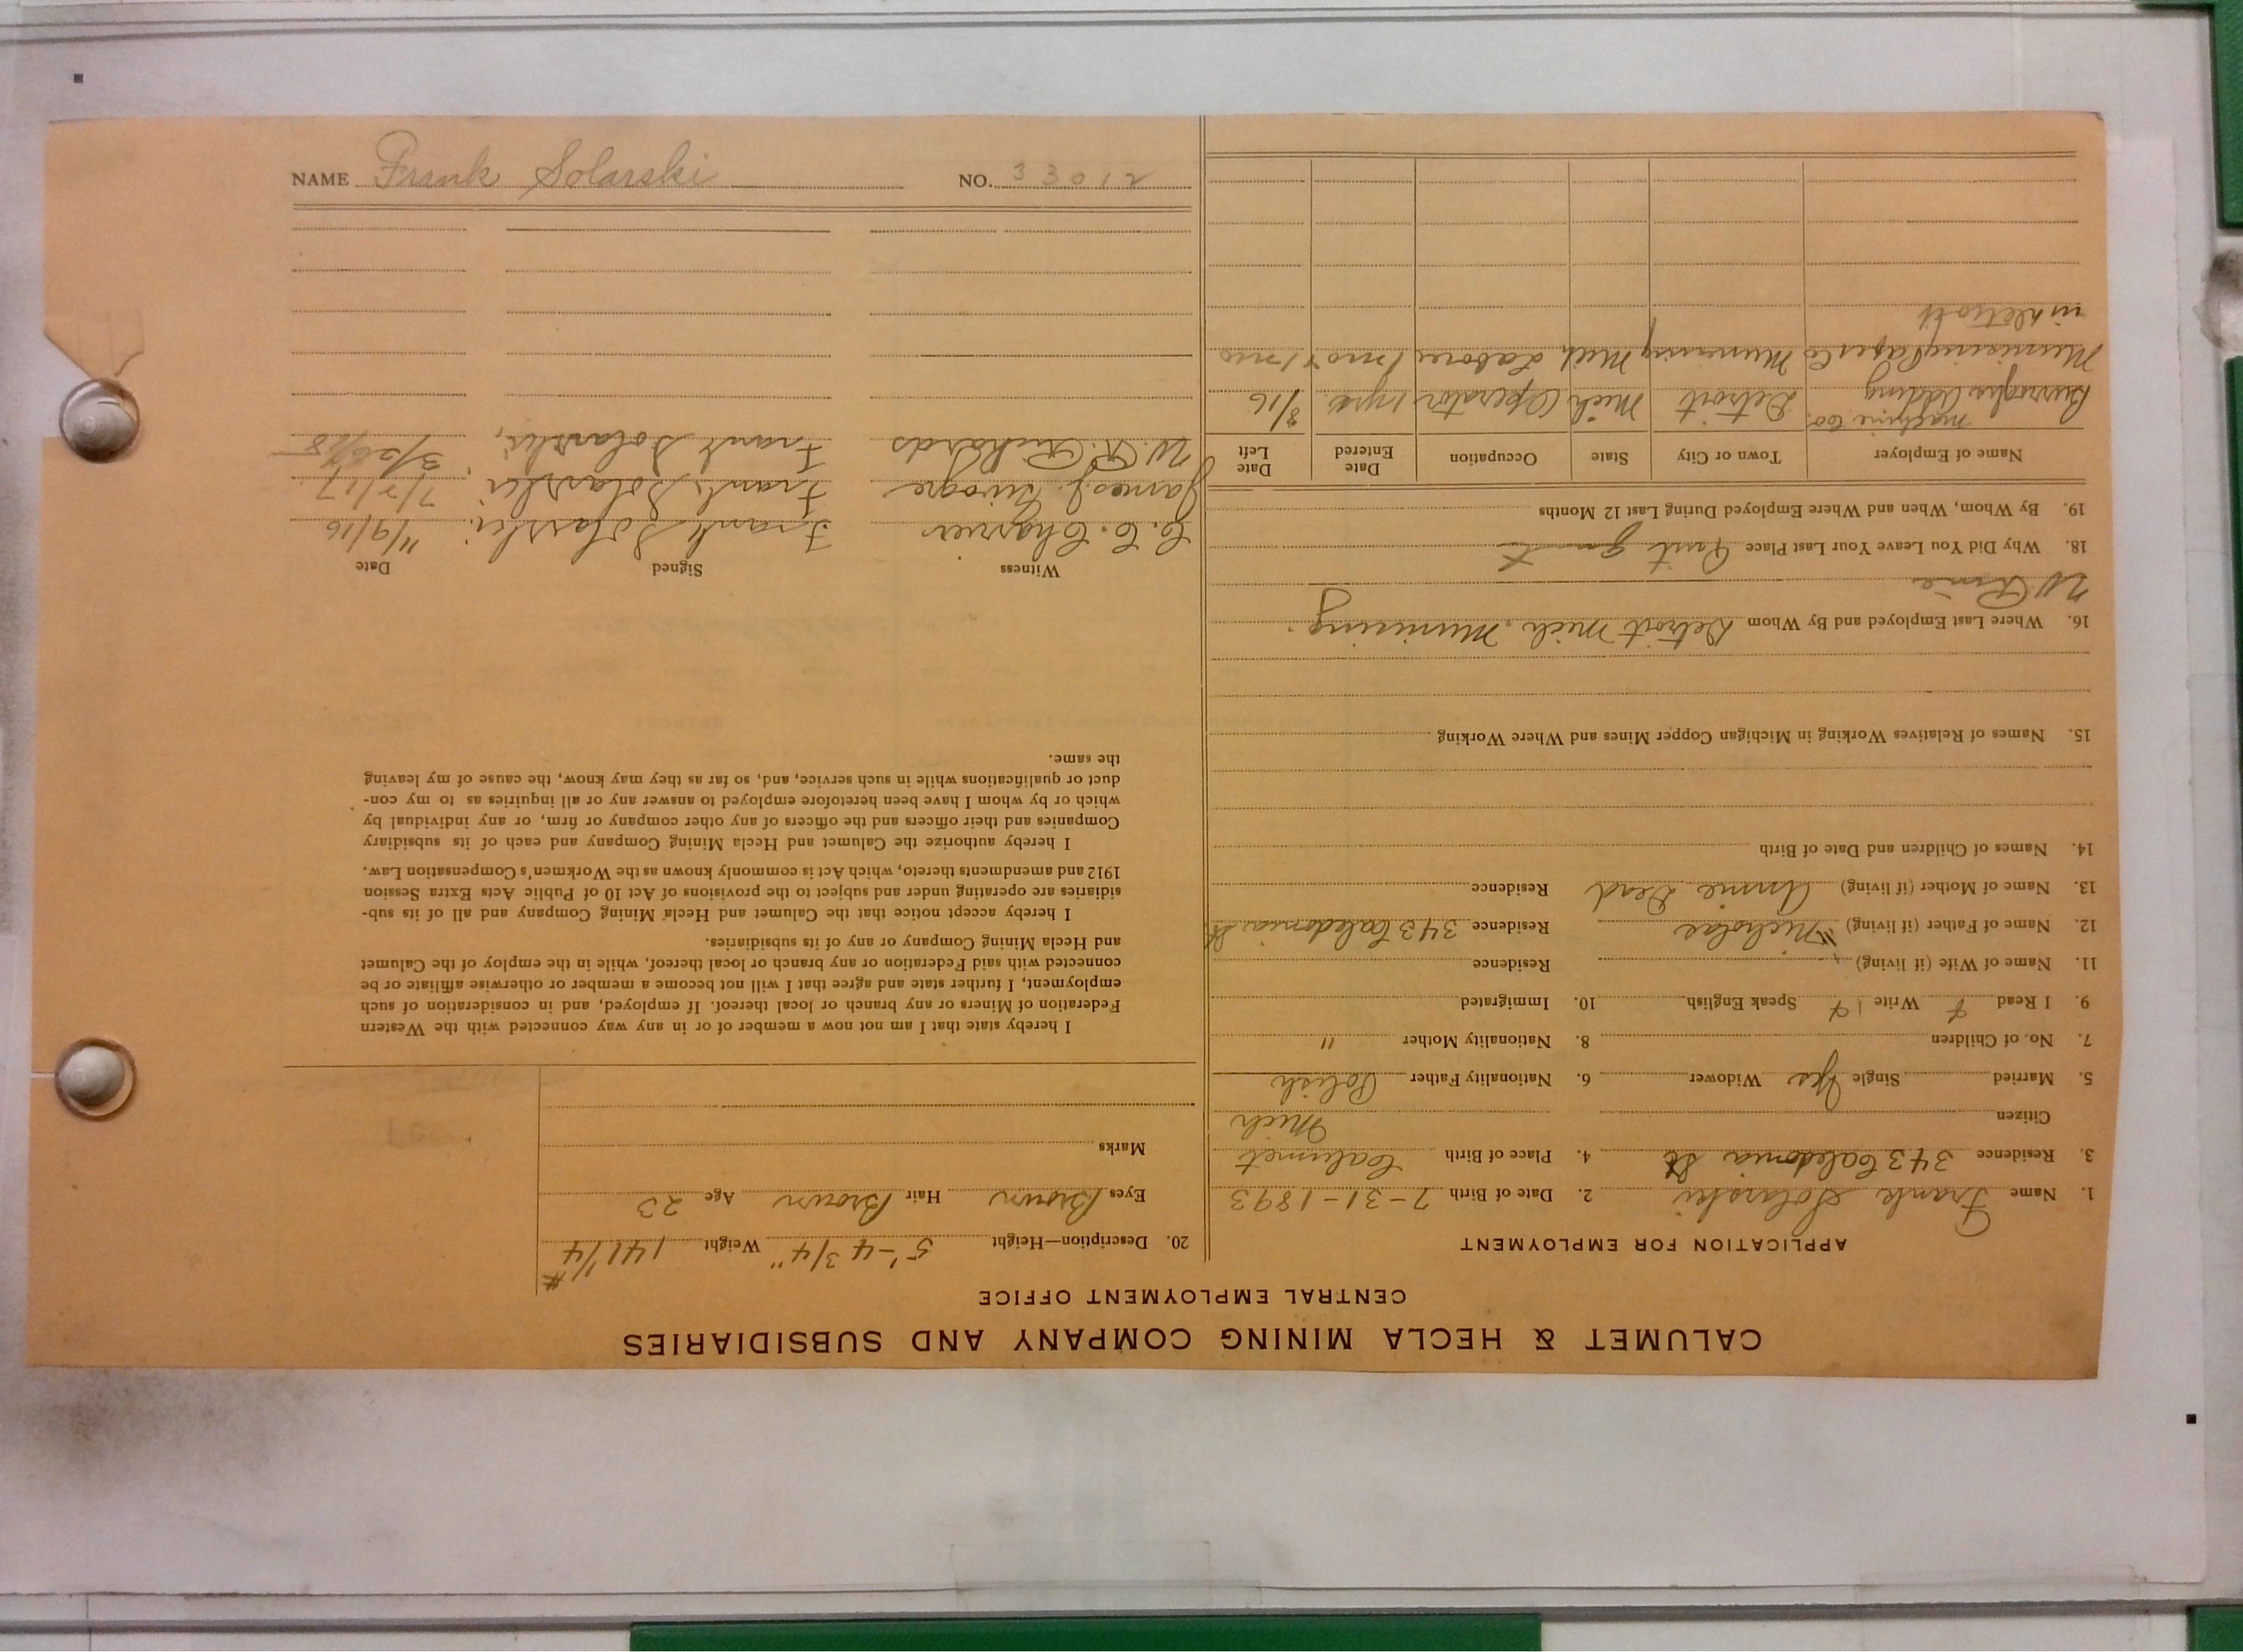 CALUMET & HECLA MINING COMPANY AND SUBSIDIARIES
CENTRAL EMPLOYMENT OFFICE
APPLICATION FOR EMPLOYMENT
1. Name Frank Solarski 2. Date of Birth 7-31-1893
3. Residence 343 Caledonia St 4. Place of Birth Calumet
Citizen Mich
5. Married Single Yes Widower 6. Nationality Father Polish
7. No. of Children 8. Nationality Mother "
9. I Read Write Speak English 10. Immigrated
11. Name of Wife (if living) Residence
12. Name of Father (if living) Nicholas Residence 343 Caledonia St
13. Name of Mother (if living) Annie Dead Residence
14. Names of Children and Date of Birth
15. Names of Relatives Working in Michigan Copper Mines and Where Working
16. Where Last Employed and By Whom Detroit Mich, Munising
18. Why Did You Leave Your Last Place
19. By Whom, When and Where Employed During Last 12 Months
Name of Employer Town or City State Occupation Date Entered Date Left
Burroughs Adding machine Co. Detroit Mich Operator 8/16
Munising Paper Co Munising Mich Laborer 1 mo
20. Description—Height 5'-4 3/4" Weight 141 1/4 #
Eyes Brown Hair Brown Age 23
Marks
I hereby state that I am not now a member of or in any way connected with the Western
Federation of Miners or any branch or local thereof. If employed, and in consideration of such
employment, I further state and agree that I will not become a member or otherwise affiliate or be
connected with said Federation or any branch or local thereof, while in the employ of the Calumet
and Hecla Mining Company or any of its subsidiaries.
I hereby accept notice that the Calumet and Hecla Mining Company and all of its sub-
sidiaries are operating under and subject to the provisions of Act 10 of Public Acts Extra Session
1912 and amendments thereto, which Act is commonly known as the Workmen's Compensation Law.
I hereby authorize the Calumet and Hecla Mining Company and each of its subsidiary
Companies and their officers and the officers of any other company or firm, or any individual by
which or by whom I have been heretofore employed to answer any or all inquiries as to my con-
duct or qualifications while in such service, and, so far as they may know, the cause of my leaving
the same.
Witness Signed Date
Frank Solarski 11/9/16
James J. Frank Solarski 7/7/17
W. R. Richards Frank Solarski
NAME Frank Solarski NO. 33012